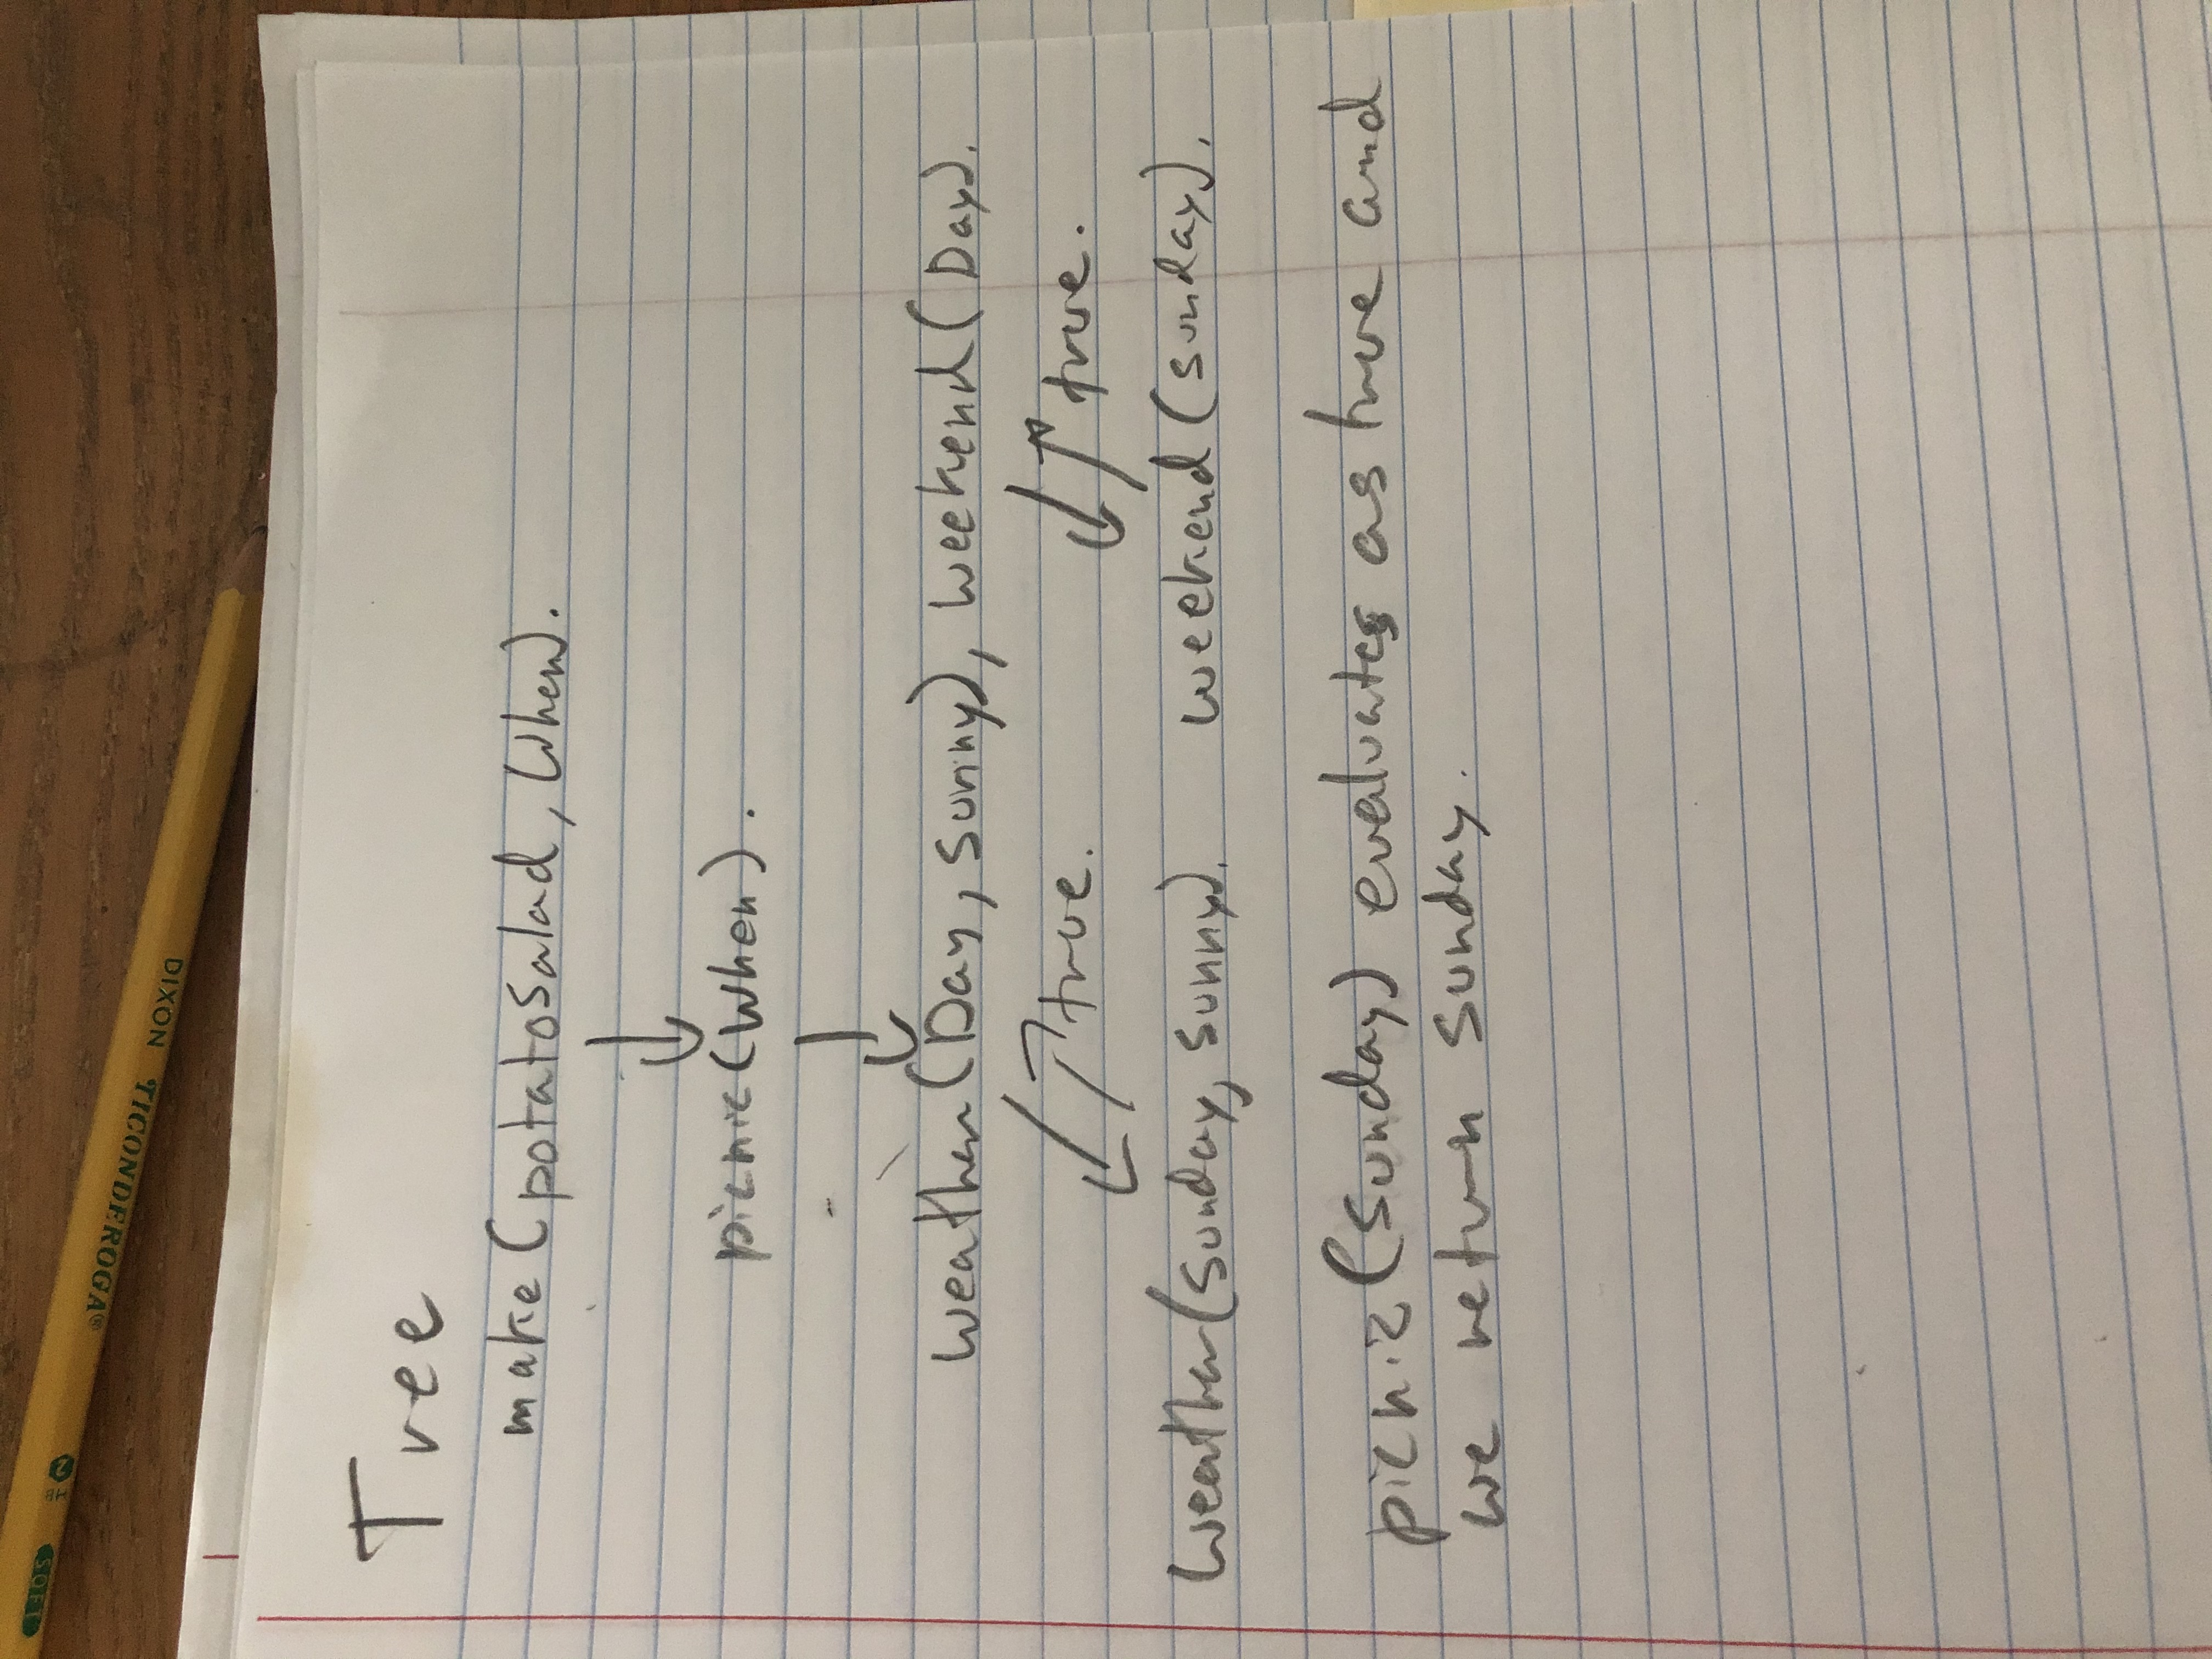 SOFT HB 2 TICONDEROGA® DIXON
Tree
make(potatosalad, When).
picnic(When).
weather(Day, sunny), weekend(Day).
true. true.
weather(sunday, sunny). weekend(sunday).
picnic(sunday) evaluates as true and
we return sunday.